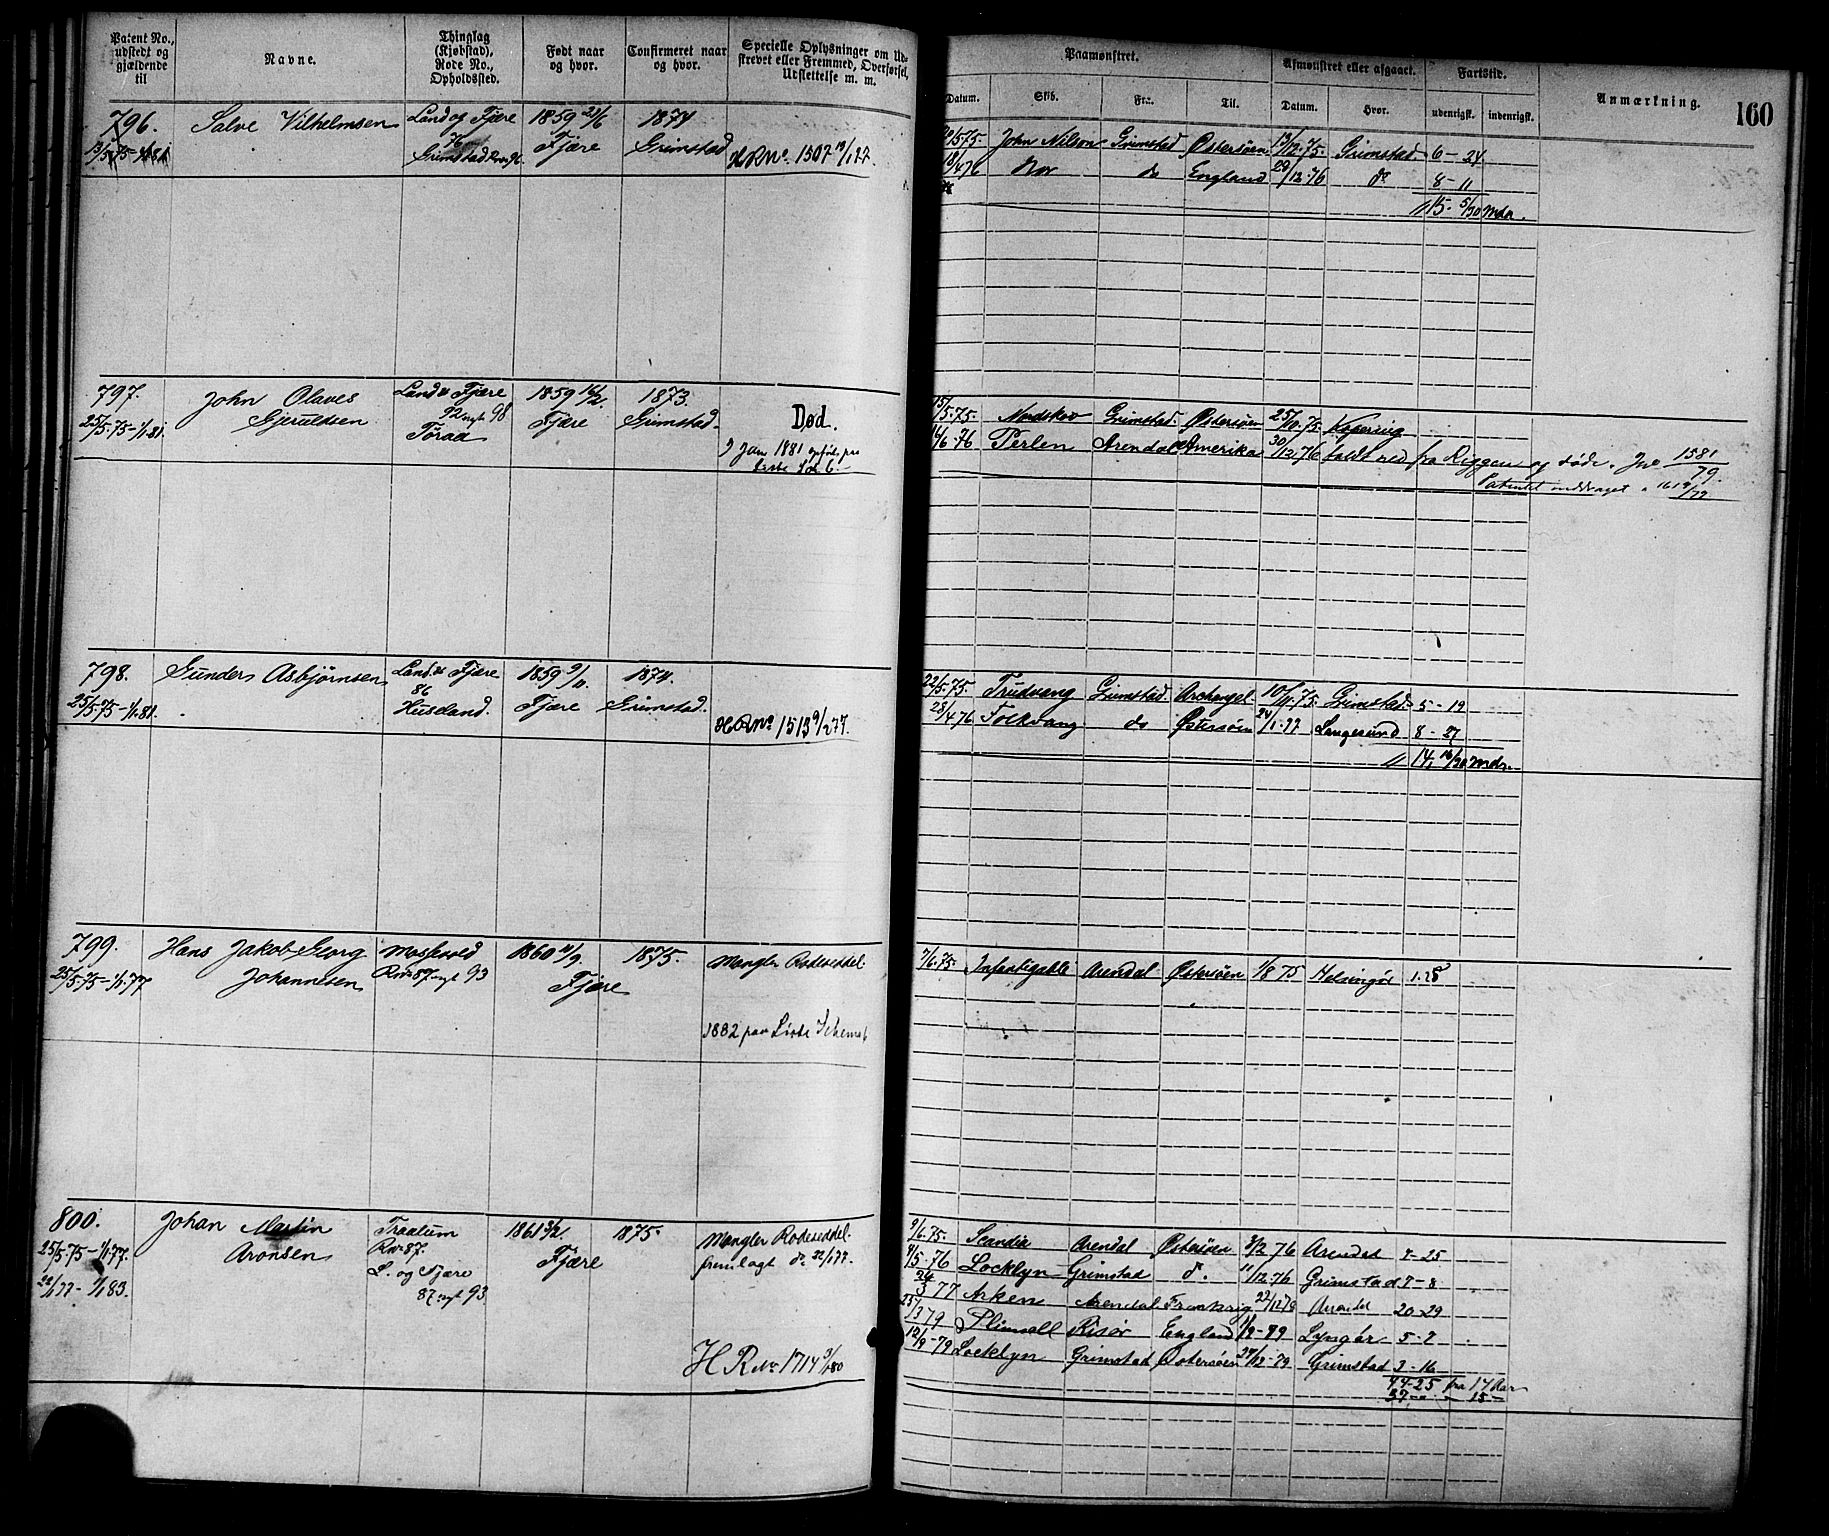 Patent No., udstedt og gjældende til
Navne.
Thinglag (Kjøbstad), Rode No., Opholdssted.
Født naar og hvor.
Confirmeret naar og hvor.
Specielle Oplysninger om Udstrevet eller Fremmed, Overførsel, Udslettelse m. m.
Paamønstret.
Afmønstret eller afgaaet.
Fartstid.
Anmærkning.
160
Datum.
Skib.
Fra.
Til.
Datum.
Hvor.
udenrigsk.
indenrigsk.
796.
Salve Vilhelmsen
Land og Fjære
76
Grimstad
1859 21/6
Fjære
1874
Grimstad
H R No. 1507
John Nilson Grimstad Østersøen 13/12.75. Grimstad. 6 - 24
18/4 76 Nor do England 29/12.76 do 8 - 11
15. 5/30 Mdr.
797.
25/5.75 - 1/1.81.
John Olaves
Gjeruldsen
Land & Fjære
92 nyt 98
Tøraa
1859 16/2.
Fjære
1873.
Grimstad.
Død.
Jan 1881
15/5.75. Nordskov Grimstad. Østersøen 25/10.75.
14/6.76 Perlen Arendal Amerika 30/12.76 faldt ned fra Riggen og døde. Jno 1581/79.
Patentet inddraget
798.
25/5.75 - 1/1.81.
Gunder Asbjørnsen
Land & Fjære
86
Huseland.
1859 9/11.
Fjære
1874.
Grimstad.
H R No. 1513 9/2 77.
22/5.75. Trudvang Grimstad. Archangel 10/11.75. Grimstad. 5 - 19
28/4 76 Folkvang do Østersøen 24/1.77 Langesund 8 - 27
14, 16/30 Mdr.
799.
25/5.75 - 1/1.77
Hans Jakob Georg
Johannesen
Rno 87. nyt 93
1860 11/9.
Fjære
1875.
Mangler Rodeseddel
1882 paa Liste Schema 6
7/6.75. Infantigable Arendal Østersøen 1/8 75 Helsingør 1.28
800.
25/5.75 - 1/1.77.
22/1 77 - 1/1 83.
Johan Martin
Aronsen
Traalum
Rno 87.
L. og Fjære
87 nyt 93
1861 3/2.
Fjære
1875.
Mangler Rodeseddel
fremlagt do 22/1 77.
H R No. 1714 3/1 80
9/6.75. Scandia Arendal Østersøen 3/2 76 Arendal 7 - 25
4/5.76 Locklyn Grimstad do. 11/12.76 Grimstad 7 - 8
24/3 77 Arken Arendal Frankrig 22/12 78 Arendal 20 - 29
25/3 79 Plimsoll Risør England 1/9 - 79 Lyngør 5 - 7
12/9 - 79 Locklyn Grimstad Østersøen 27/12 - 79 Grimstad 3 - 16
44 - 25 fra 17 Aar
37 - " - 15 -